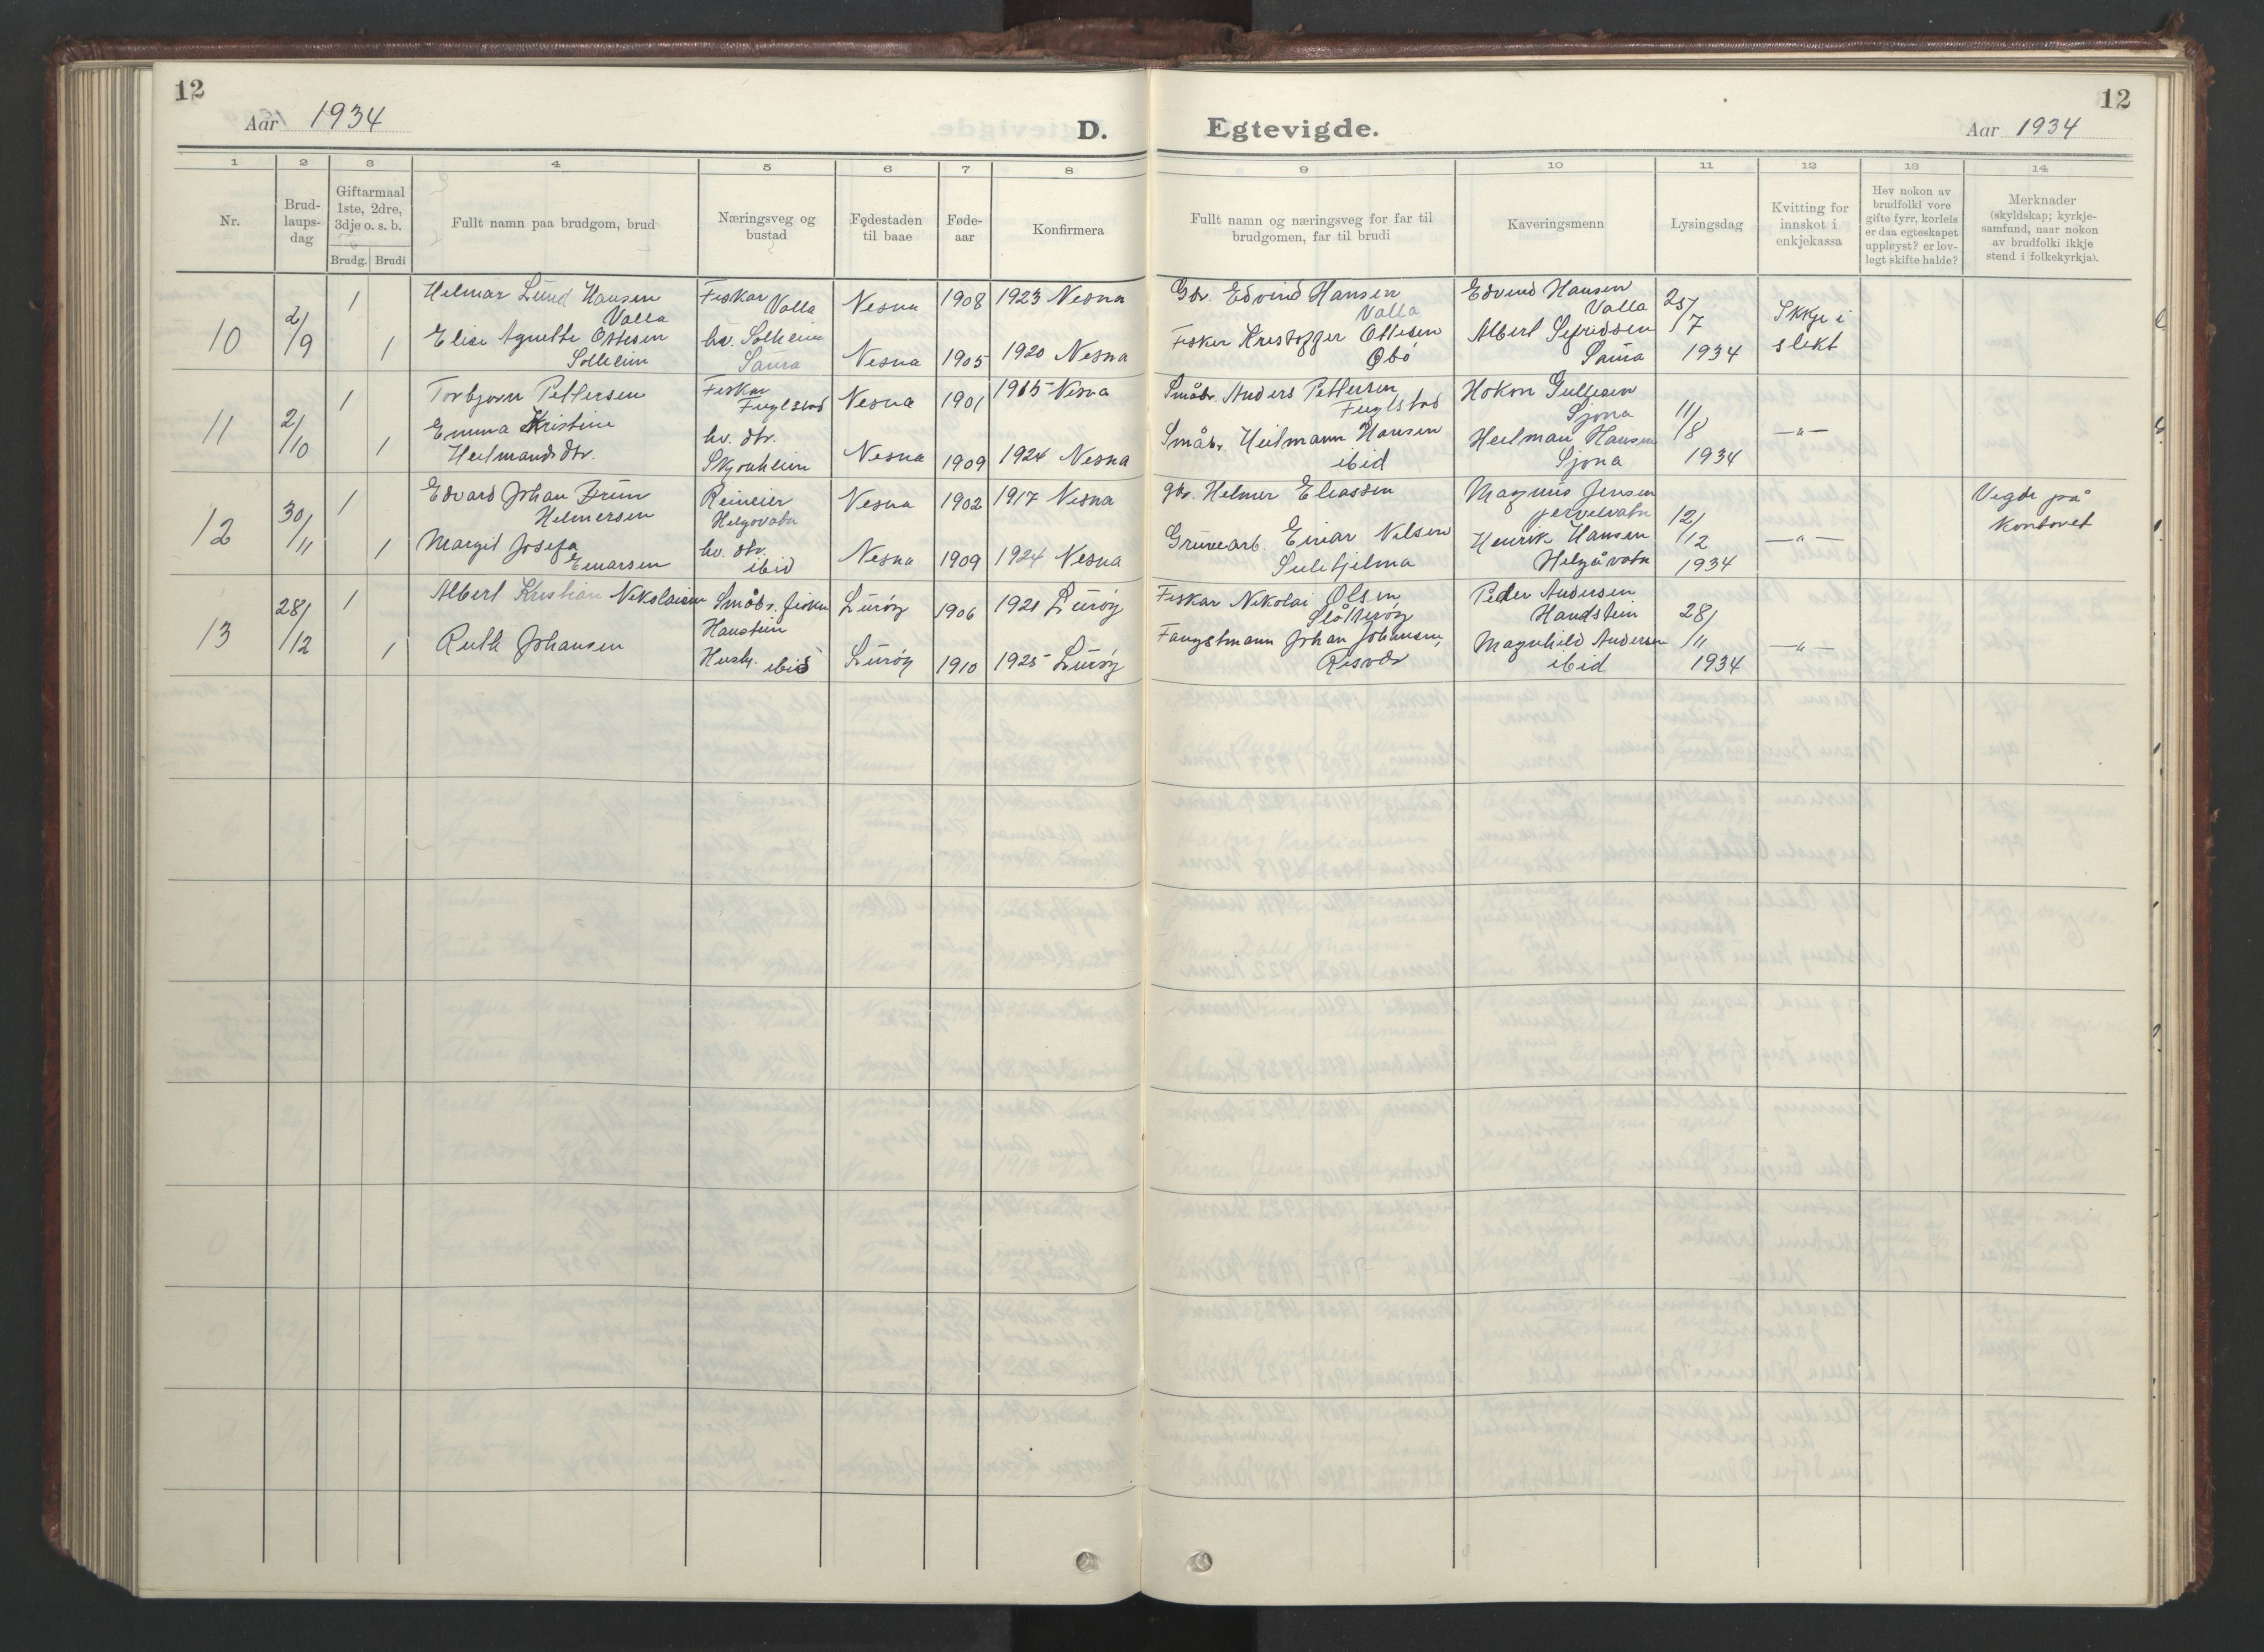 12
Aar 1934
D.
Egtevigde.
12
Aar 1934
1 2 3 4 5 6 7 8 9 10 11 12 13 14
Nr.
Brud-
laups-
dag
Giftarmaal
1ste, 2dre,
3dje o. s. b.
Brudg. Brudi
Fullt namn paa brudgom, brud
Næringsveg og
bustad
Fødestaden
til baae
Føde-
aar
Konfirmera
Fullt namn og næringsveg for far til
brudgomen, far til brudi
Kaveringsmenn
Lysingsdag
Kvitting for
innskot i
enkjekassa
Hev nokon av
brudfolki vore
gifte fyrr, korleis
er daa egteskapet
uppløyst? er lov-
legt skifte halde?
Merknader
(skyldskap; kyrkje-
samfund, naar nokon
av brudfolki ikkje
stend i folkekyrkja).
10
2/9
1
Hilmar Lund Hansen
Valla
Fiskar
Valla
Nesna
1908
1923 Nesna
Gbr. Edvind Hansen
Valla
Edvind Hansen
Valla
25/7
1934
Skkje i
slekt
1
Elise Agnethe Ottesen
Solheim
hv. Solheim
Saura
Nesna
1905
1920 Nesna
Fisker Kristoffer Ottesen
Øbø
Albert Sefridsen
Saura
11
2/10
1
Torbjørn Pettersen
Fiskar
Fuglstad
Nesna
1901
1915 Nesna
Småbr. Anders Pettersen
Fuglstad
Hokon Gullesen
Sjona
11/8
1934
—"—
1
Emma Kristine
Heilmandsdtr.
hv. dtr.
Skjerheim
Nesna
1909
1924 Nesna
Småbr. Heilmann Hansen
ibid
Heilman Hansen
Sjona
12
30/11
1
Edvard Johan Brun
Helmersen
Reineier
Helgovatn
Nesna
1902
1917 Nesna
gbr. Helmer Eliassen
Magnus Jensen
12/12
1934
—"—
Vigde på
kontoret
1
Margit Josefa
Einarsen
hv. dtr.
ibid
Nesna
1909
1924 Nesna
Gruvearb. Einar Nilsen
Sulitjelma
Henrik Hansen
Helgåvatn
13
28/12
1
Albert Kristian Nikolaisen
Småbr. fisker
Hanstein
Lurøy
1906
1921 Lurøy
Fiskar Nikolai Olsen
Slåtterøy
Peder Andersen
Handstein
28/11
1934
—"—
1
Ruth Johansen
Hush. ibid
Lurøy
1910
1925 Lurøy
Fangstmann Johan Johansen,
Risvær
Magnhild Andersen
ibid